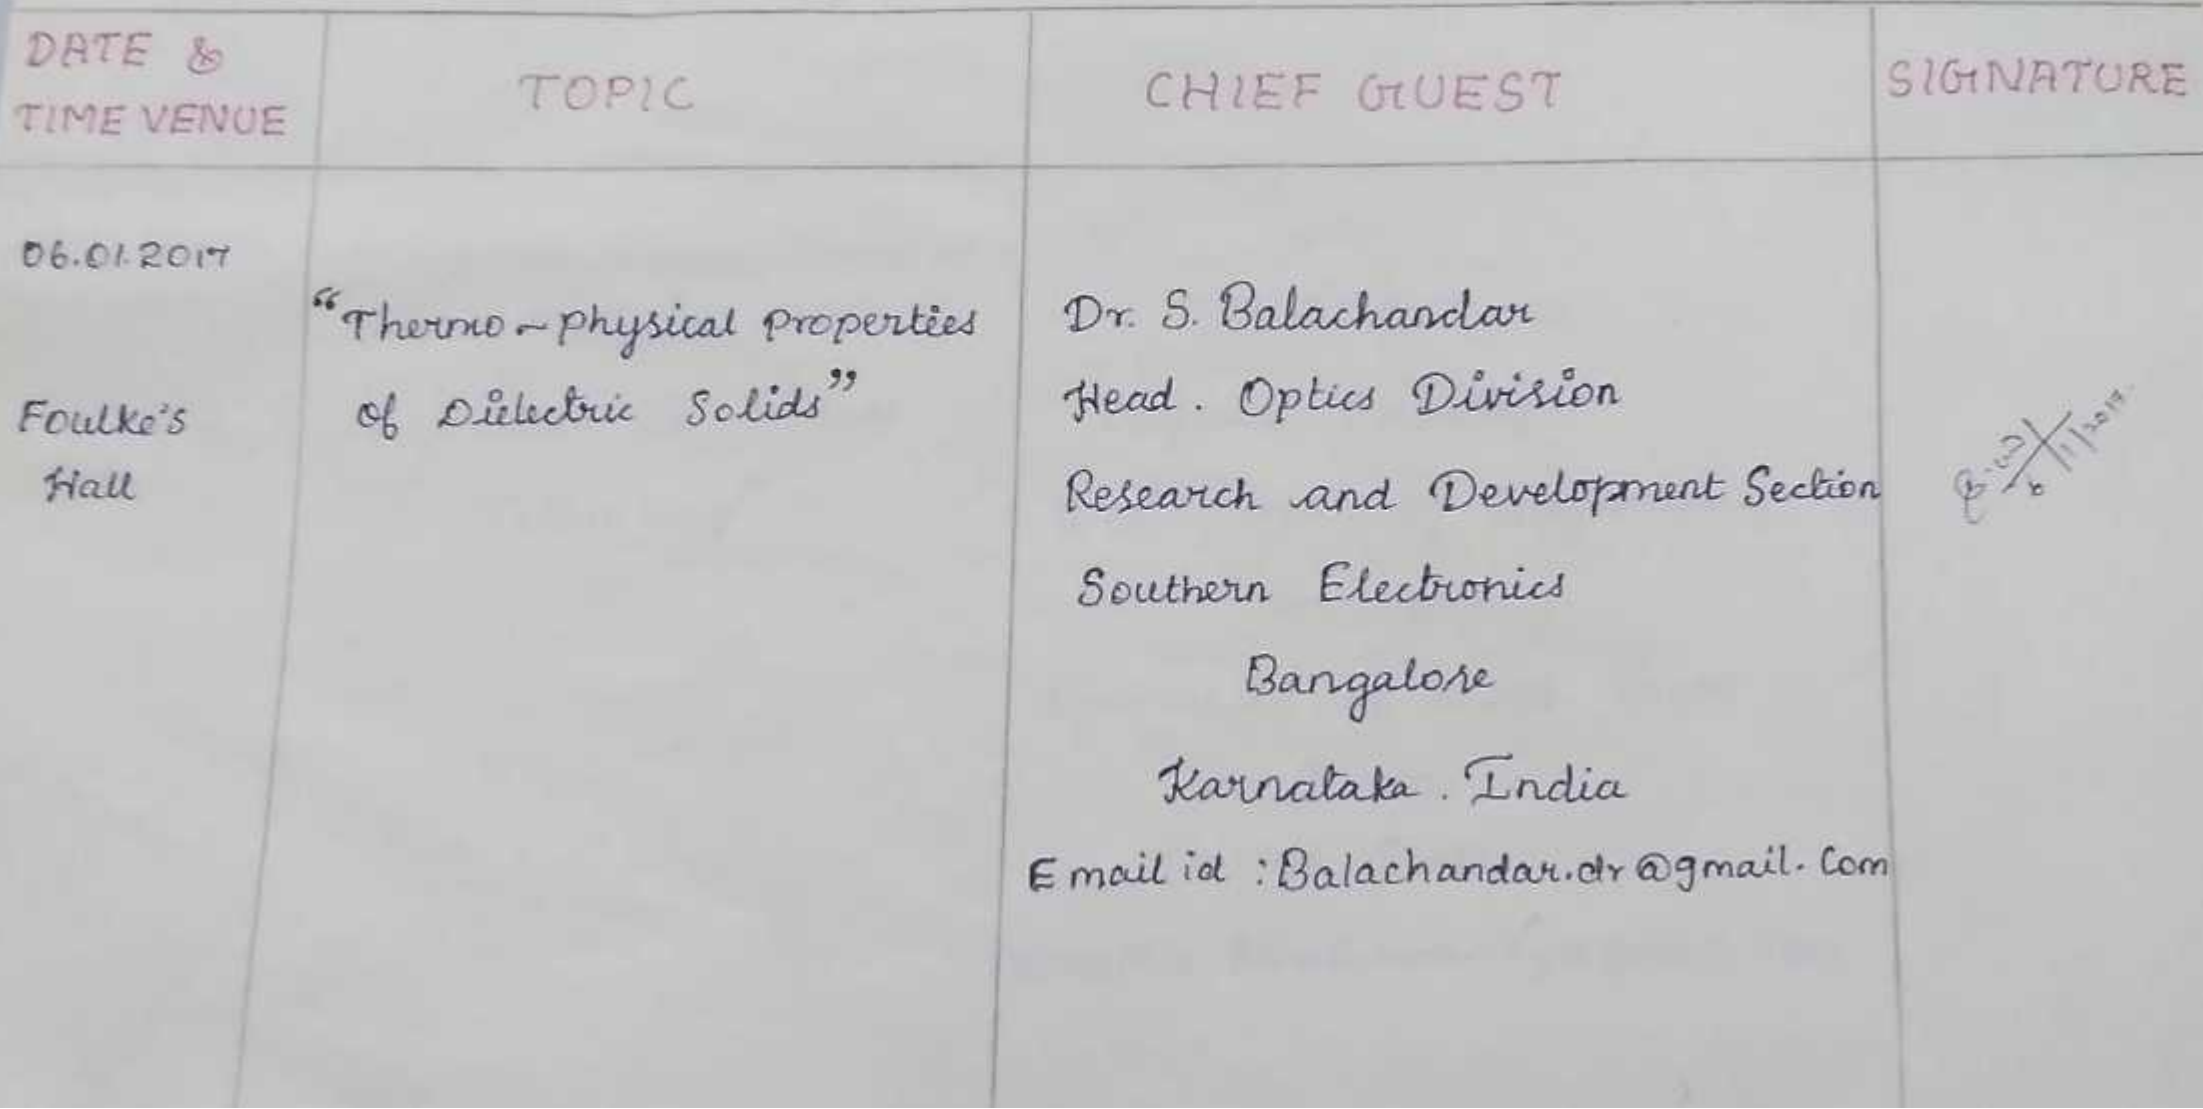 DATE &
TIME VENUE
TOPIC
CHIEF GUEST
SIGNATURE
06.01.2017
Foulke's
Hall
"Thermo-physical properties
of Dielectric Solids"
Dr. S. Balachandar
Head. Optics Division
Research and Development Section
Southern Electronics
Bangalore
Karnataka. India
Email id : Balachandar.dr@gmail.com